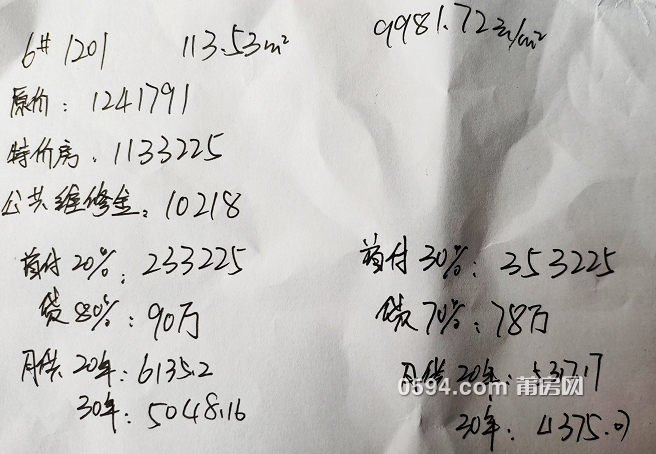 6# 1201 113.53m² 9981.72元/m²
原价: 1241791
特价房: 1133225
公共维修金: 10218
首付20%: 233225 首付30%: 353225
贷80%: 90万 贷70%: 78万
月供20年: 6135.2 月供20年: 5317.17
30年: 5048.16 30年: 4375.07
0594.com 莆房网